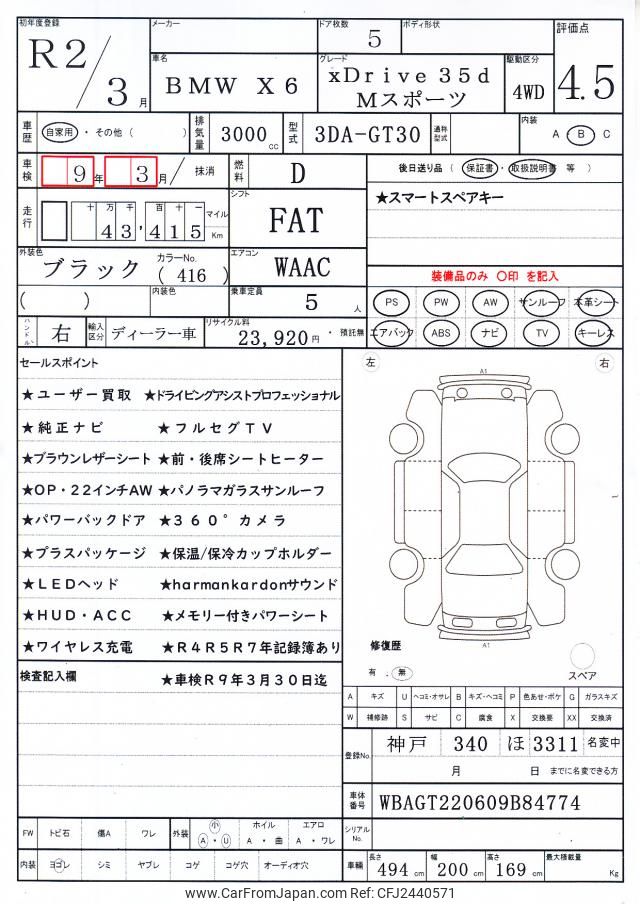 初年度登録 メーカー ドア枚数 ボディ形状 評価点
R2/3月 5 4.5
車名 グレード 駆動区分
BMW X6 xDrive 35d Mスポーツ 4WD
車歴 自家用・その他( ) 排気量 3000cc 型式 3DA-GT30 通称型式 内装 A・B C
車検 9年 3月/ 抹消 燃料 D 後日送り品 ( 保証書・取扱説明書 等 )
走行 十 万 千 百 十 一 マイル Km シフト ★スマートスペアキー
43,415 FAT
外装色 カラーNo. エアコン
ブラック ( 416 ) WAAC 装備品のみ 〇印 を記入
( ) 内装色 乗車定員 5人 PS PW AW サンルーフ 本革シート
ハンドル 右 輸入区分 ディーラー車 リサイクル料 23,920円 ・預託無 エアバック ABS ナビ TV キーレス
セールスポイント 左 右
★ユーザー買取 ★ドライビングアシストプロフェッショナル
A1
★純正ナビ ★フルセグTV
★ブラウンレザーシート ★前・後席シートヒーター
★OP・22インチAW ★パノラマガラスサンルーフ
★パワーバックドア ★360°カメラ
★プラスパッケージ ★保温/保冷カップホルダー
★LEDヘッド ★harmankardonサウンド
★HUD・ACC ★メモリー付きパワーシート
★ワイヤレス充電 ★R4R5R7年記録簿あり
修復歴 A1
有 . 無 スペア
検査記入欄 ★車検R9年3月30日迄
A キズ U ヘコミ・オサレ B キズ・ヘコミ P 色あせ・ボケ G ガラスキズ
W 補修跡 S サビ C 腐食 X 交換要 XX 交換済
登録No. 神戸 340 ほ 3311 名変中
月 日 までに名変できる方
車体番号 WBAGT220609B84774
FW トビ石 傷A ワレ 外装 小 A・U ホイル A・曲 エアロ A・ワレ シリアルNo.
内装 ヨゴレ シミ ヤブレ コゲ コゲ穴 オーディオ穴 車輛 長さ 494cm 幅 200cm 高さ 169cm 最大積載量 Kg
www.CarFromJapan.com Ref: CFJ2440571